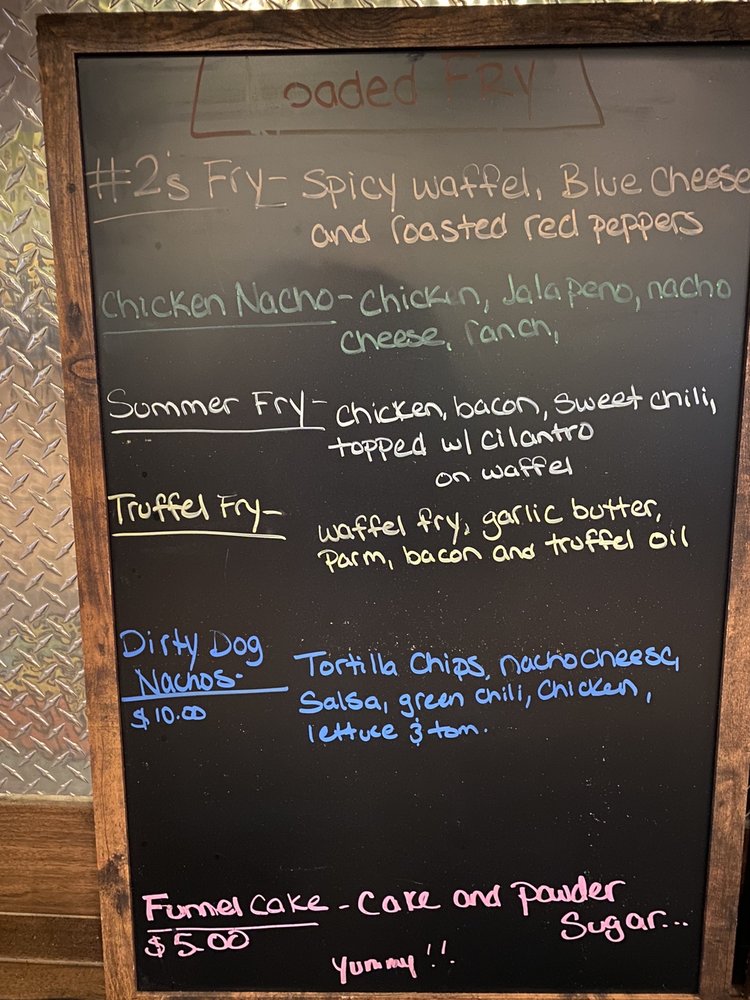 oaded FRY
#2's Fry- Spicy waffel, Blue Cheese
and roasted red peppers
Chicken Nacho- chicken, Jalapeno, nacho
cheese, ranch,
Summer Fry- chicken, bacon, sweet chili,
topped w/ cilantro
on waffel
Truffel Fry-
waffel fry, garlic butter,
Parm, bacon and truffel oil
Dirty Dog
Nachos-
$10.00
Tortilla Chips, nacho cheese,
Salsa, green chili, Chicken,
lettuce & tom.
Funnel cake - Cake and Powder
Sugar...
$5.00
Yummy!!